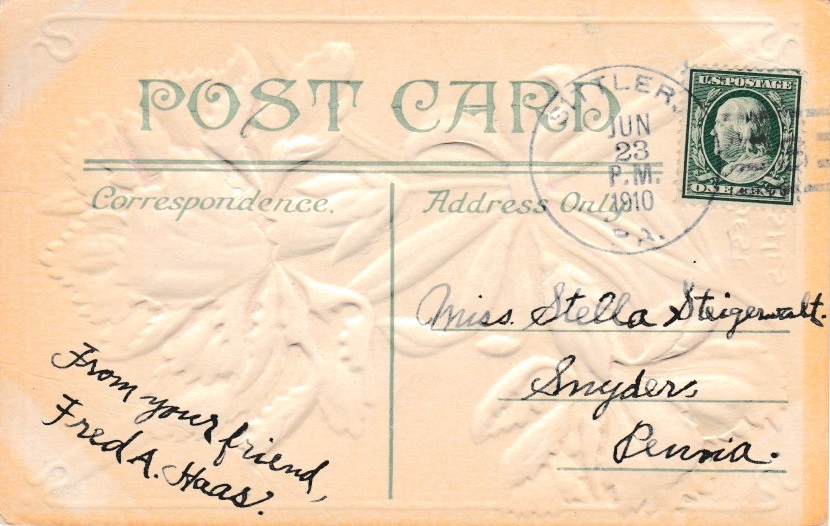 POST CARD
Correspondence.
Address Only
JUN
23
P.M.
1910
PA.
U.S. POSTAGE
ONE CENT
Miss. Stella Steigerwalt.
Snyders,
Penna.
From your friend,
Fred A. Haas.